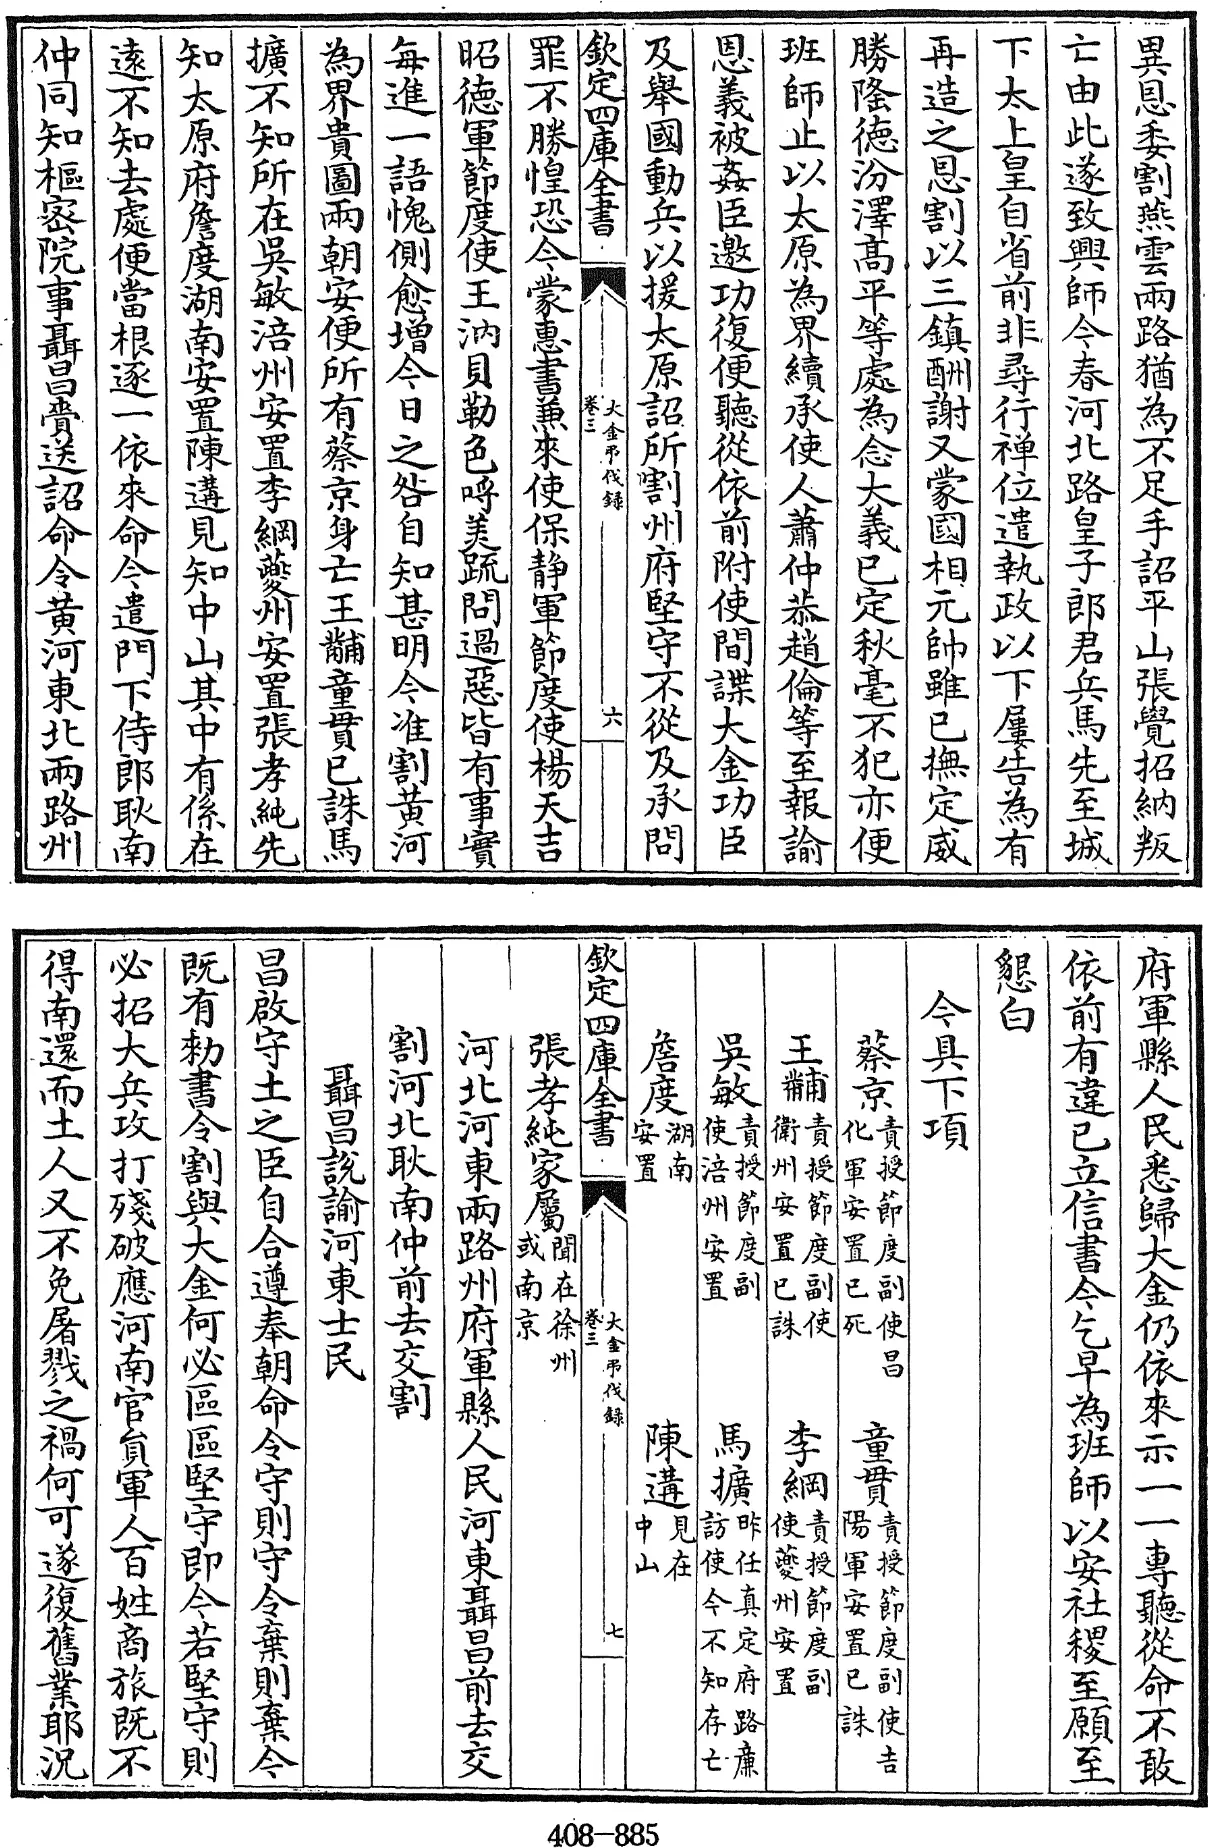 異恩委割燕雲兩路猶為不足手詔平山張覺招納叛
亡由此遂致興師今春河北路皇子郎君兵馬先至城
下太上皇自省前非尋行禅位遣執政以下屢告為有
再造之恩割以三鎮酬謝又蒙國相元帥雖已撫定威
勝隆德汾澤髙平等處為念大義已定秋毫不犯亦便
班師止以太原為界續承使人蕭仲恭趙倫等至報諭
恩義被姦臣邀功復便聽從依前附使間諜大金功臣
及舉國動兵以援太原詔所割州府堅守不從及承問
欽定四庫全書
大金弔伐錄
卷三
六
罪不勝惶恐今蒙惠書兼來使保静軍節度使楊天吉
昭德軍節度使王汭貝勒色哷美疏問過惡皆有事實
每進一語愧側愈增今日之咎自知甚明今准割黄河
為界貴圖兩朝安便所有蔡京身亡王黼童貫已誅馬
擴不知所在吳敏涪州安置李綱夔州安置張孝純先
知太原府詹度湖南安置陳遘見知中山其中有係在
遠不知去處便當根逐一依來命今遣門下侍郎耿南
仲同知樞密院事聶昌賫送詔命令黄河東北兩路州
府軍縣人民悉歸大金仍依來示一一專聽從命不敢
依前有違已立信書今乞早為班師以安社稷至願至
懇白
今具下項
蔡京責授節度副使昌化軍安置已死　童貫責授節度副使吉陽軍安置已誅
王黼責授節度副使衛州安置已誅　李綱責授節度副使夔州安置
吳敏責授節度副使涪州安置　馬擴昨任真定府路亷訪使今不知存亡
詹度湖南安置　陳遘見在中山
欽定四庫全書
大金弔伐錄
卷三
七
張孝純家屬聞在徐州或南京
河北河東兩路州府軍縣人民河東聶昌前去交
割河北耿南仲前去交割
聶昌說諭河東士民
昌啟守土之臣自合遵奉朝命令守則守令棄則棄今
既有勅書令割與大金何必區區堅守即今若堅守則
必招大兵攻打殘破應河南官員軍人百姓商旅既不
得南還而土人又不免屠戮之禍何可遂復舊業耶況
408-885